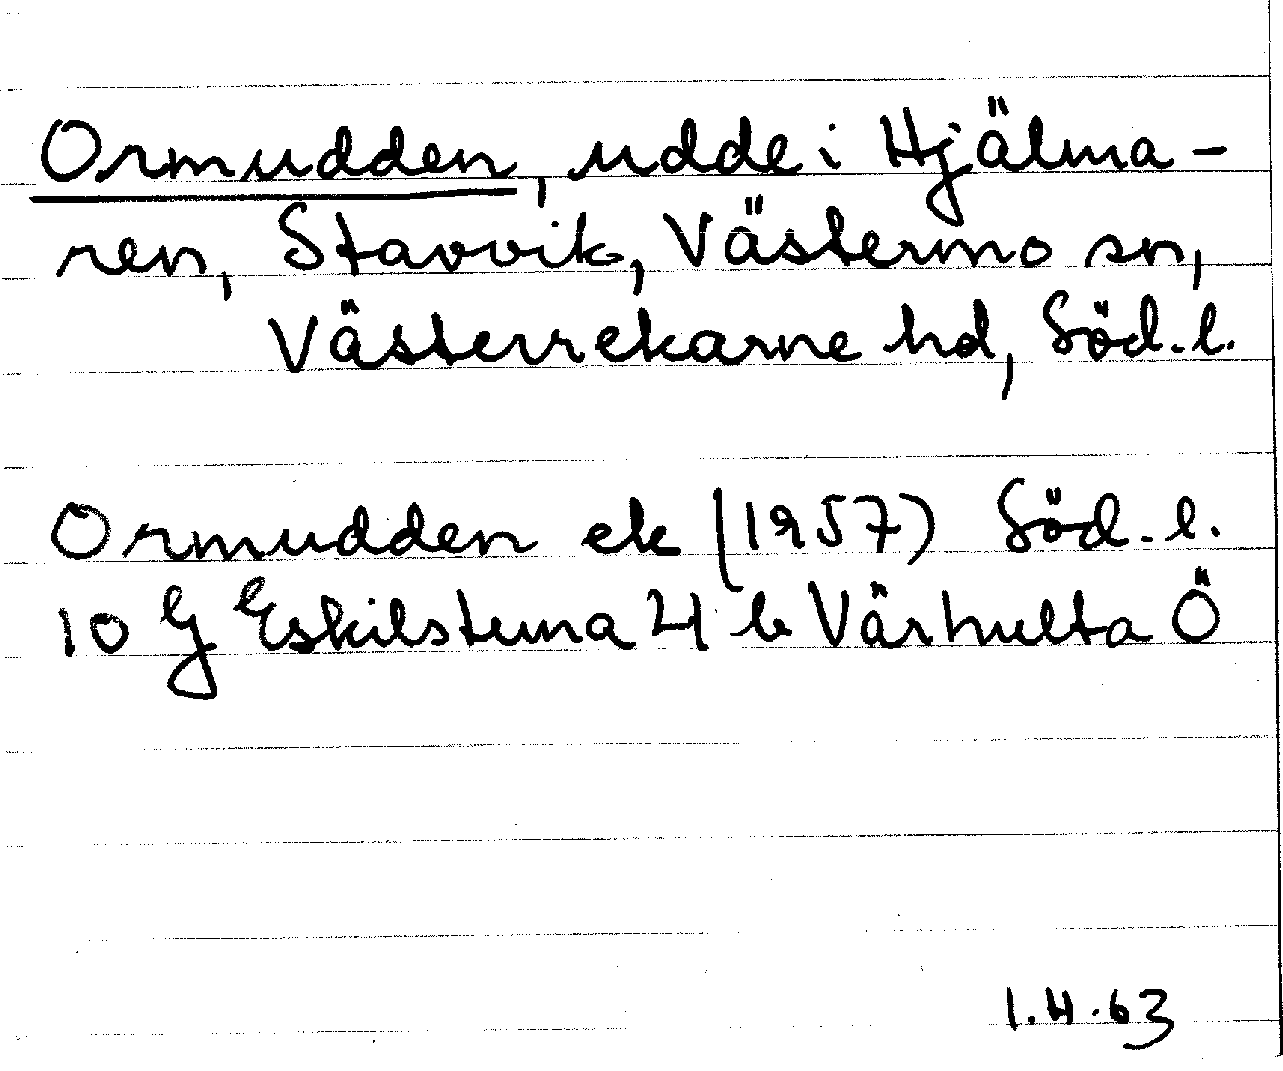 Ormudden, udde i Hjälma-
ren, Stavvik, Västermo sn,
Västerrekarne hd, Söd.l.
Ormudden ek (1957) Söd.l.
10 G Eskilstuna 4 b Värhulta Ö
1.4.63